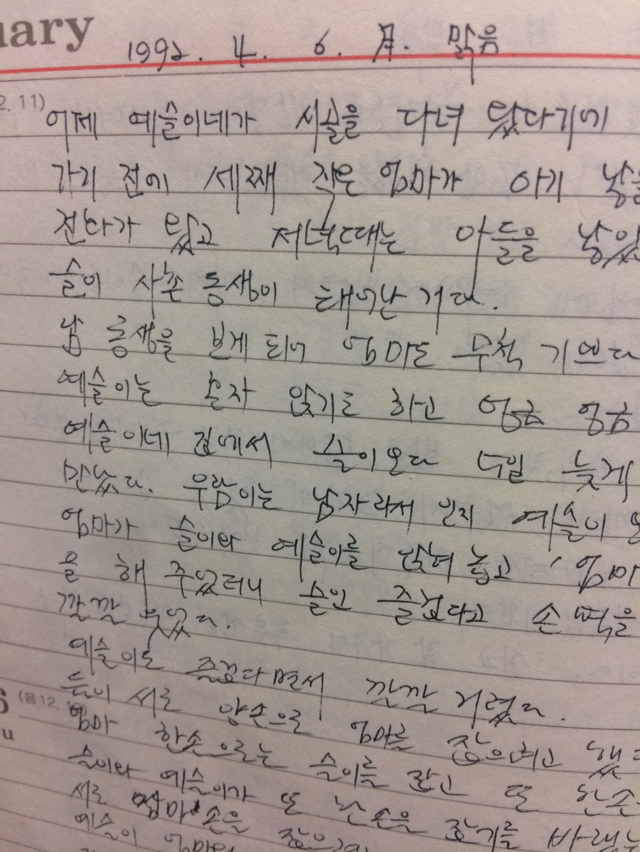 uary
1992. 4. 6. 月. 맑음
2. 11)
어제 예슬이네가 시골을 다녀 왔다기에
가기 전에 세째 작은 엄마가 아기 낳을
전화가 왔고 저녁때는 아들을 낳았
슬이 사촌 동생이 태어난 거다.
남 동생을 보게 되어 엄마도 무척 기쁘다
예슬이는 혼자 앉기도 하고 엉금 엉금
예슬이네 집에서 슬이오다 늦게
만났다. 우람이는 남자라서 인지 예슬이
엄마가 슬이와 예슬이를 앉혀 놓고 엄마
을 해 주었더니 슬인 즐겁다고 손뼉을
깔깔 웃었다.
예슬이도 즐겁다면서 깔깔 거렸다.
6 (음12.
둘이 서로 양손으로 엄마를 잡으려고 했다
u
엄마 한손으로는 슬이를 잡고 또 한손
슬이와 예슬이가 또 난 손을 잡기를 바랬는
서로 엄마 손을
예슬이 엄마와